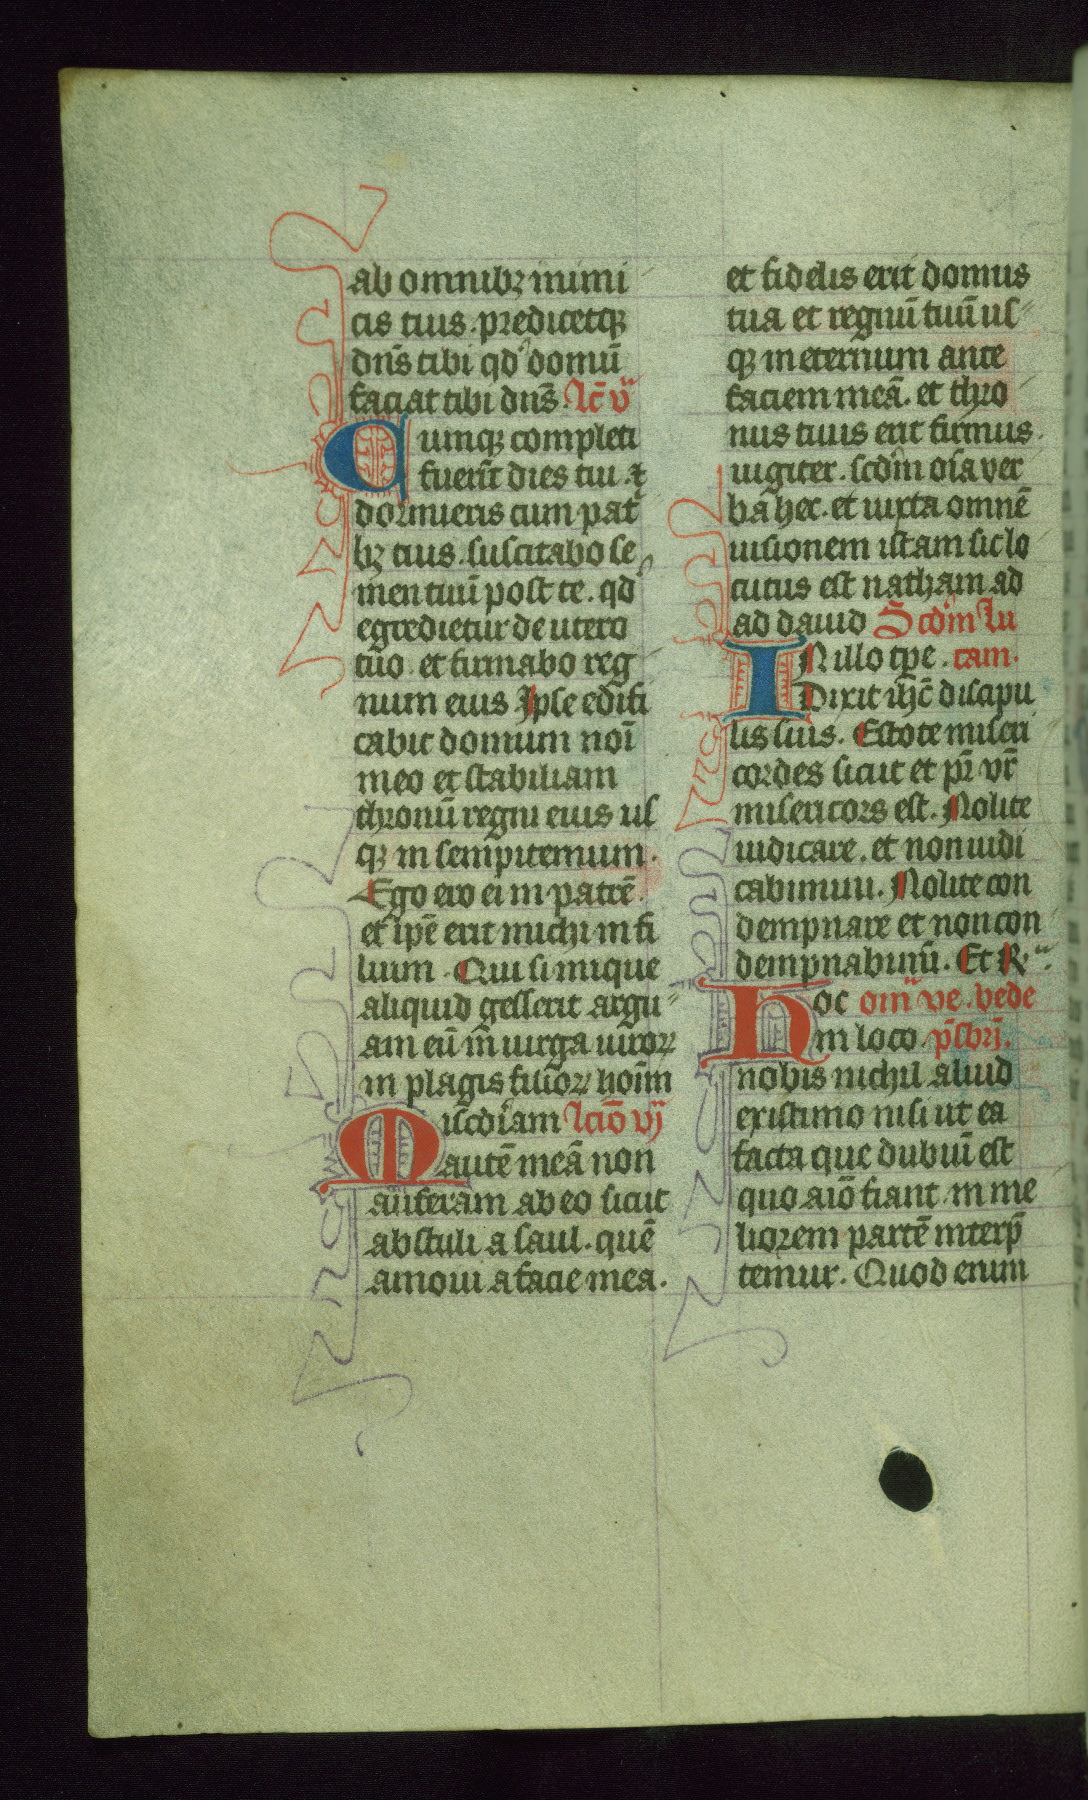 ab omnibꝫ inimi
cis tuis. predicetqꝫ
dn̄s tibi qd' domū
faciat tibi dn̄s. lc̄ v͛
Cumqꝫ completi
fuerīt dies tui. ⁊
dormieris cum pat͛
bꝫ tuis. suscitabo se
men tuū post te. qd'
egredietur de utero
tuo. et firmabo reg
num eius Ipse edifi
cabit domum noī
meo et stabiliam
thronū regni eius us
qꝫ in sempiternum.
Ego ero ei in patrē.
et ip̄e erit michi in fi
lium. Qui si inique
aliquid gesserit argu
am eū in̄ uirga uiroꝝ
in plagis filioꝝ hoīm
Miscd'iam lcīo vj
autē meā non
auferam ab eo sicut
abstuli a saul. quē
amoui a facie mea.
et fidelis erit domus
tua et regnū tuū us
qꝫ in eternum ante
faciem meā. et thro
nus tuus erit firmus.
iugiter. scd'm oīa ver
ba hec. et iuxta omnē
uisionem istam sic lo
cutus est natham ad
ad dauid Scd'm lu
IN illo tp̄e. cam.
Dixit ih̄c discipu
lis suis. Estote miseri
cordes sicut et pr̄ vr̄
misericors est. Nolite
iudicare. et non iudi
cabimini. Nolite con
dempnare et non con
dempnabimī. Et R͛.
Hoc om͛ ve. bede
in loco. p̄sbrj.
nobis nichil aliud
existimo nisi ut ea
facta que dubiū est
quo aīo fiant. in me
liorem partē interp̄
temur. Quod enim